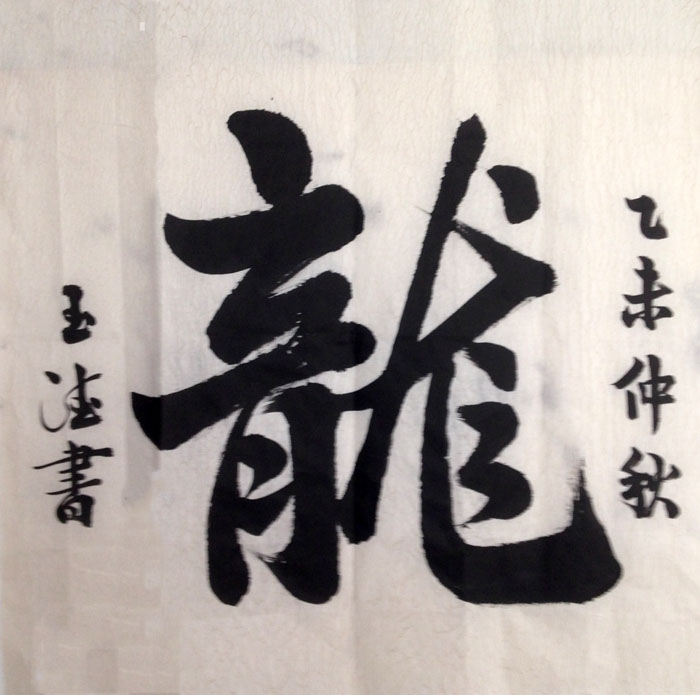 乙未仲秋
龍
玉德書